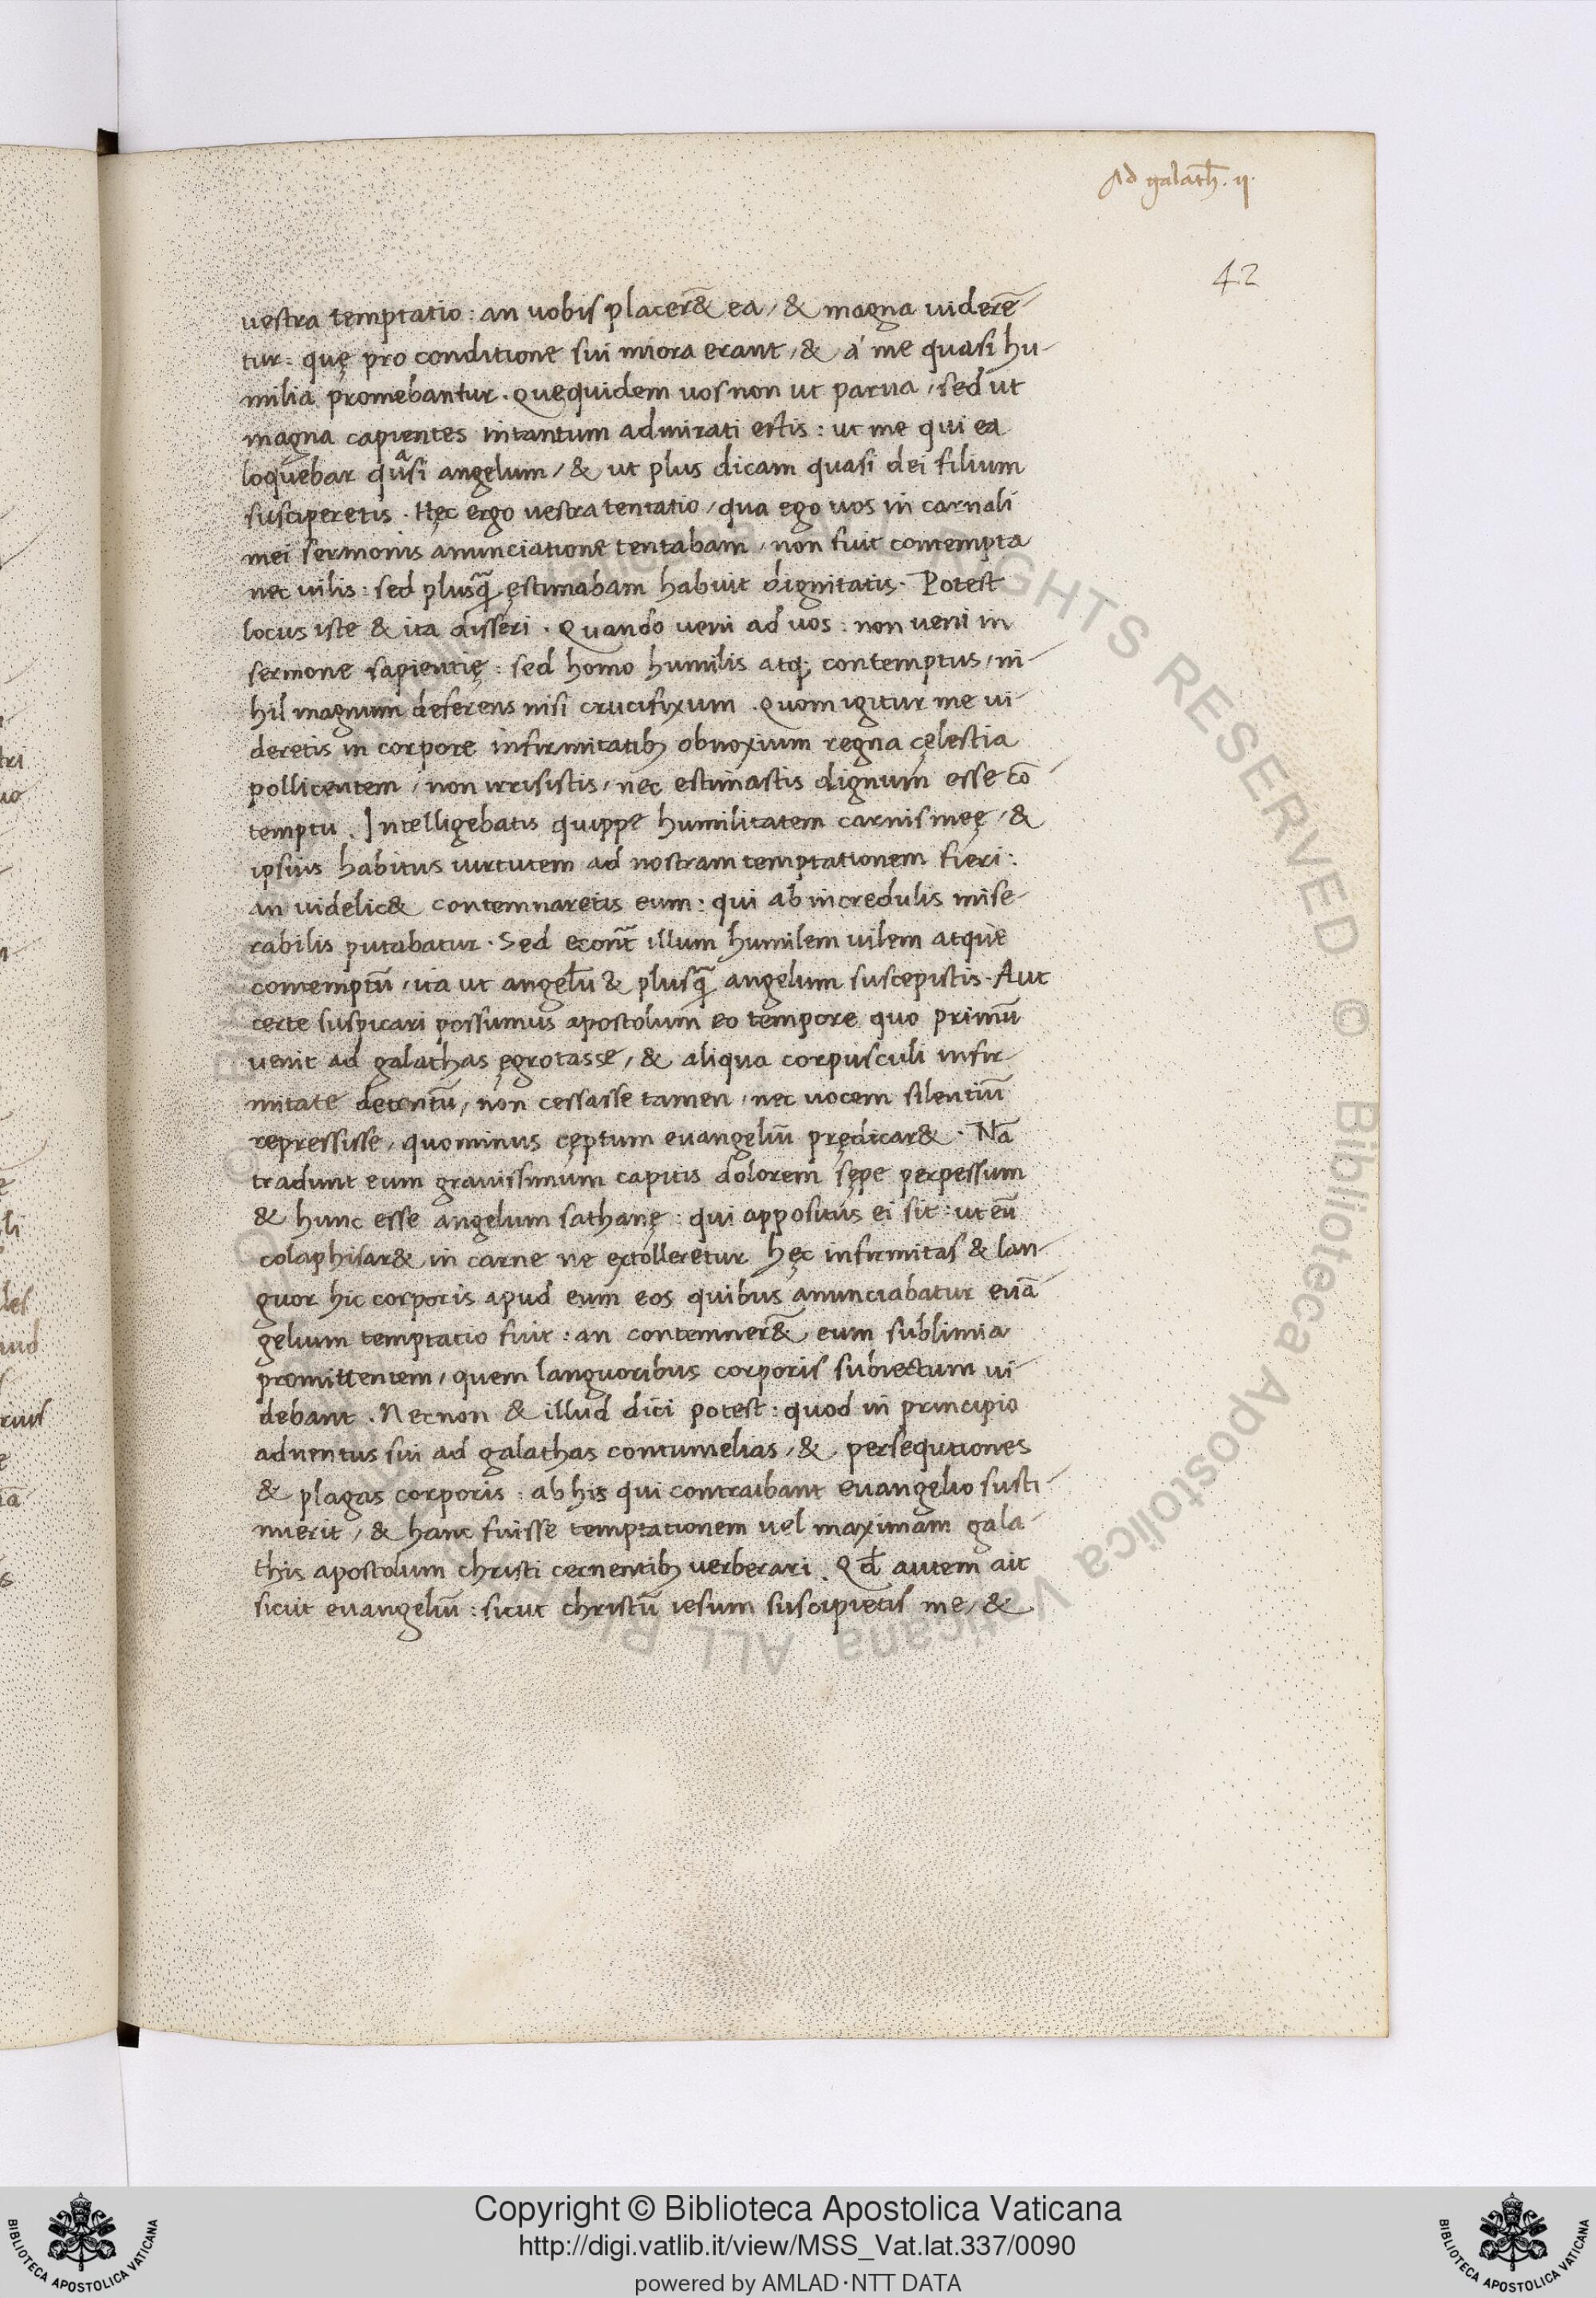 Ad galath̅. ii.
42
vestra temptatio: an uobis placer&̅ ea, & magna viderē-
tur: quę pro conditione sui miora erant, & á me quasi hu-
milia promebantur. Quequidem uos non ut parua, sed ut
magna capientes intantum admirati estis: ut me qui ea
loquebar quasi angelum, & ut plus dicam quasi dei filium
susciperetis. Hęc ergo vestra tentatio, qua ego uos in carnali
mei sermonis anunciatione tentabam, non fuit contempta
nec uilis: sed plusq̄ ęstimabam habuit dignitatis. Potest
locus iste & ita disseri. Quando veni ad uos: non veni in
sermone sapientię: sed homo humilis atq; contemptus, ni-
hil magnum deferens nisi crucifixum. Quom igitur me ui-
deretis in corpore infirmitatib; obnoxium regna cęlestia
pollicentem, non irrisistis, nec estimastis dignum esse cō-
temptu. Intelligebatis quippe humilitatem carnis meę, &
ipsius habitus uirtutem ad nostram temptationem fieri:
an uidelic& contemnaretis eum: qui ab incredulis mise-
rabilis putabatur. Sed econt̅ illum humilem uilem atque
contemptū, ita ut angelū & plusq̄ angelum suscepistis. Aut
certe suspicari possumus apostolum eo tempore quo primū
uenit ad galathas ęgrotasse, & aliqua corpusculi infir-
mitate detentū, non cessasse tamen, nec uocem silentiū
repressisse, quominus cęptum euangeliū prędicar&. Nā
tradunt eum grauissimum capitis dolorem sępe perpessum
& hunc esse angelum sathanę: qui appositus ei sit: ut eū
colaphisar& in carne ne extolleretur hęc infirmitas & lan-
guor hic corporis apud eum eos quibus anunciabatur euā-
gelium temptatio fuit: an contemner&̅ eum sublimia
promittentem, quem languoribus corporis subiectum ui-
debant. Necnon & illud dici potest: quod in principio
aduentus sui ad galathas contumelias, & persequtiones
& plagas corporis: ab his qui contraibant euangelio susti-
nuerit, & hanc fuisse temptationem uel maximam gala-
this apostolum christi cernentib; uerberari. Qd̅ autem ait
sicut euangeliū: sicut christū iesum suscipietis me, &
© Biblioteca Apostolica Vaticana ALL RIGHTS RESERVED
Copyright © Biblioteca Apostolica Vaticana
http://digi.vatlib.it/view/MSS_Vat.lat.337/0090
powered by AMLAD·NTT DATA
BIBLIOTECA APOSTOLICA VATICANA
BIBLIOTECA APOSTOLICA VATICANA